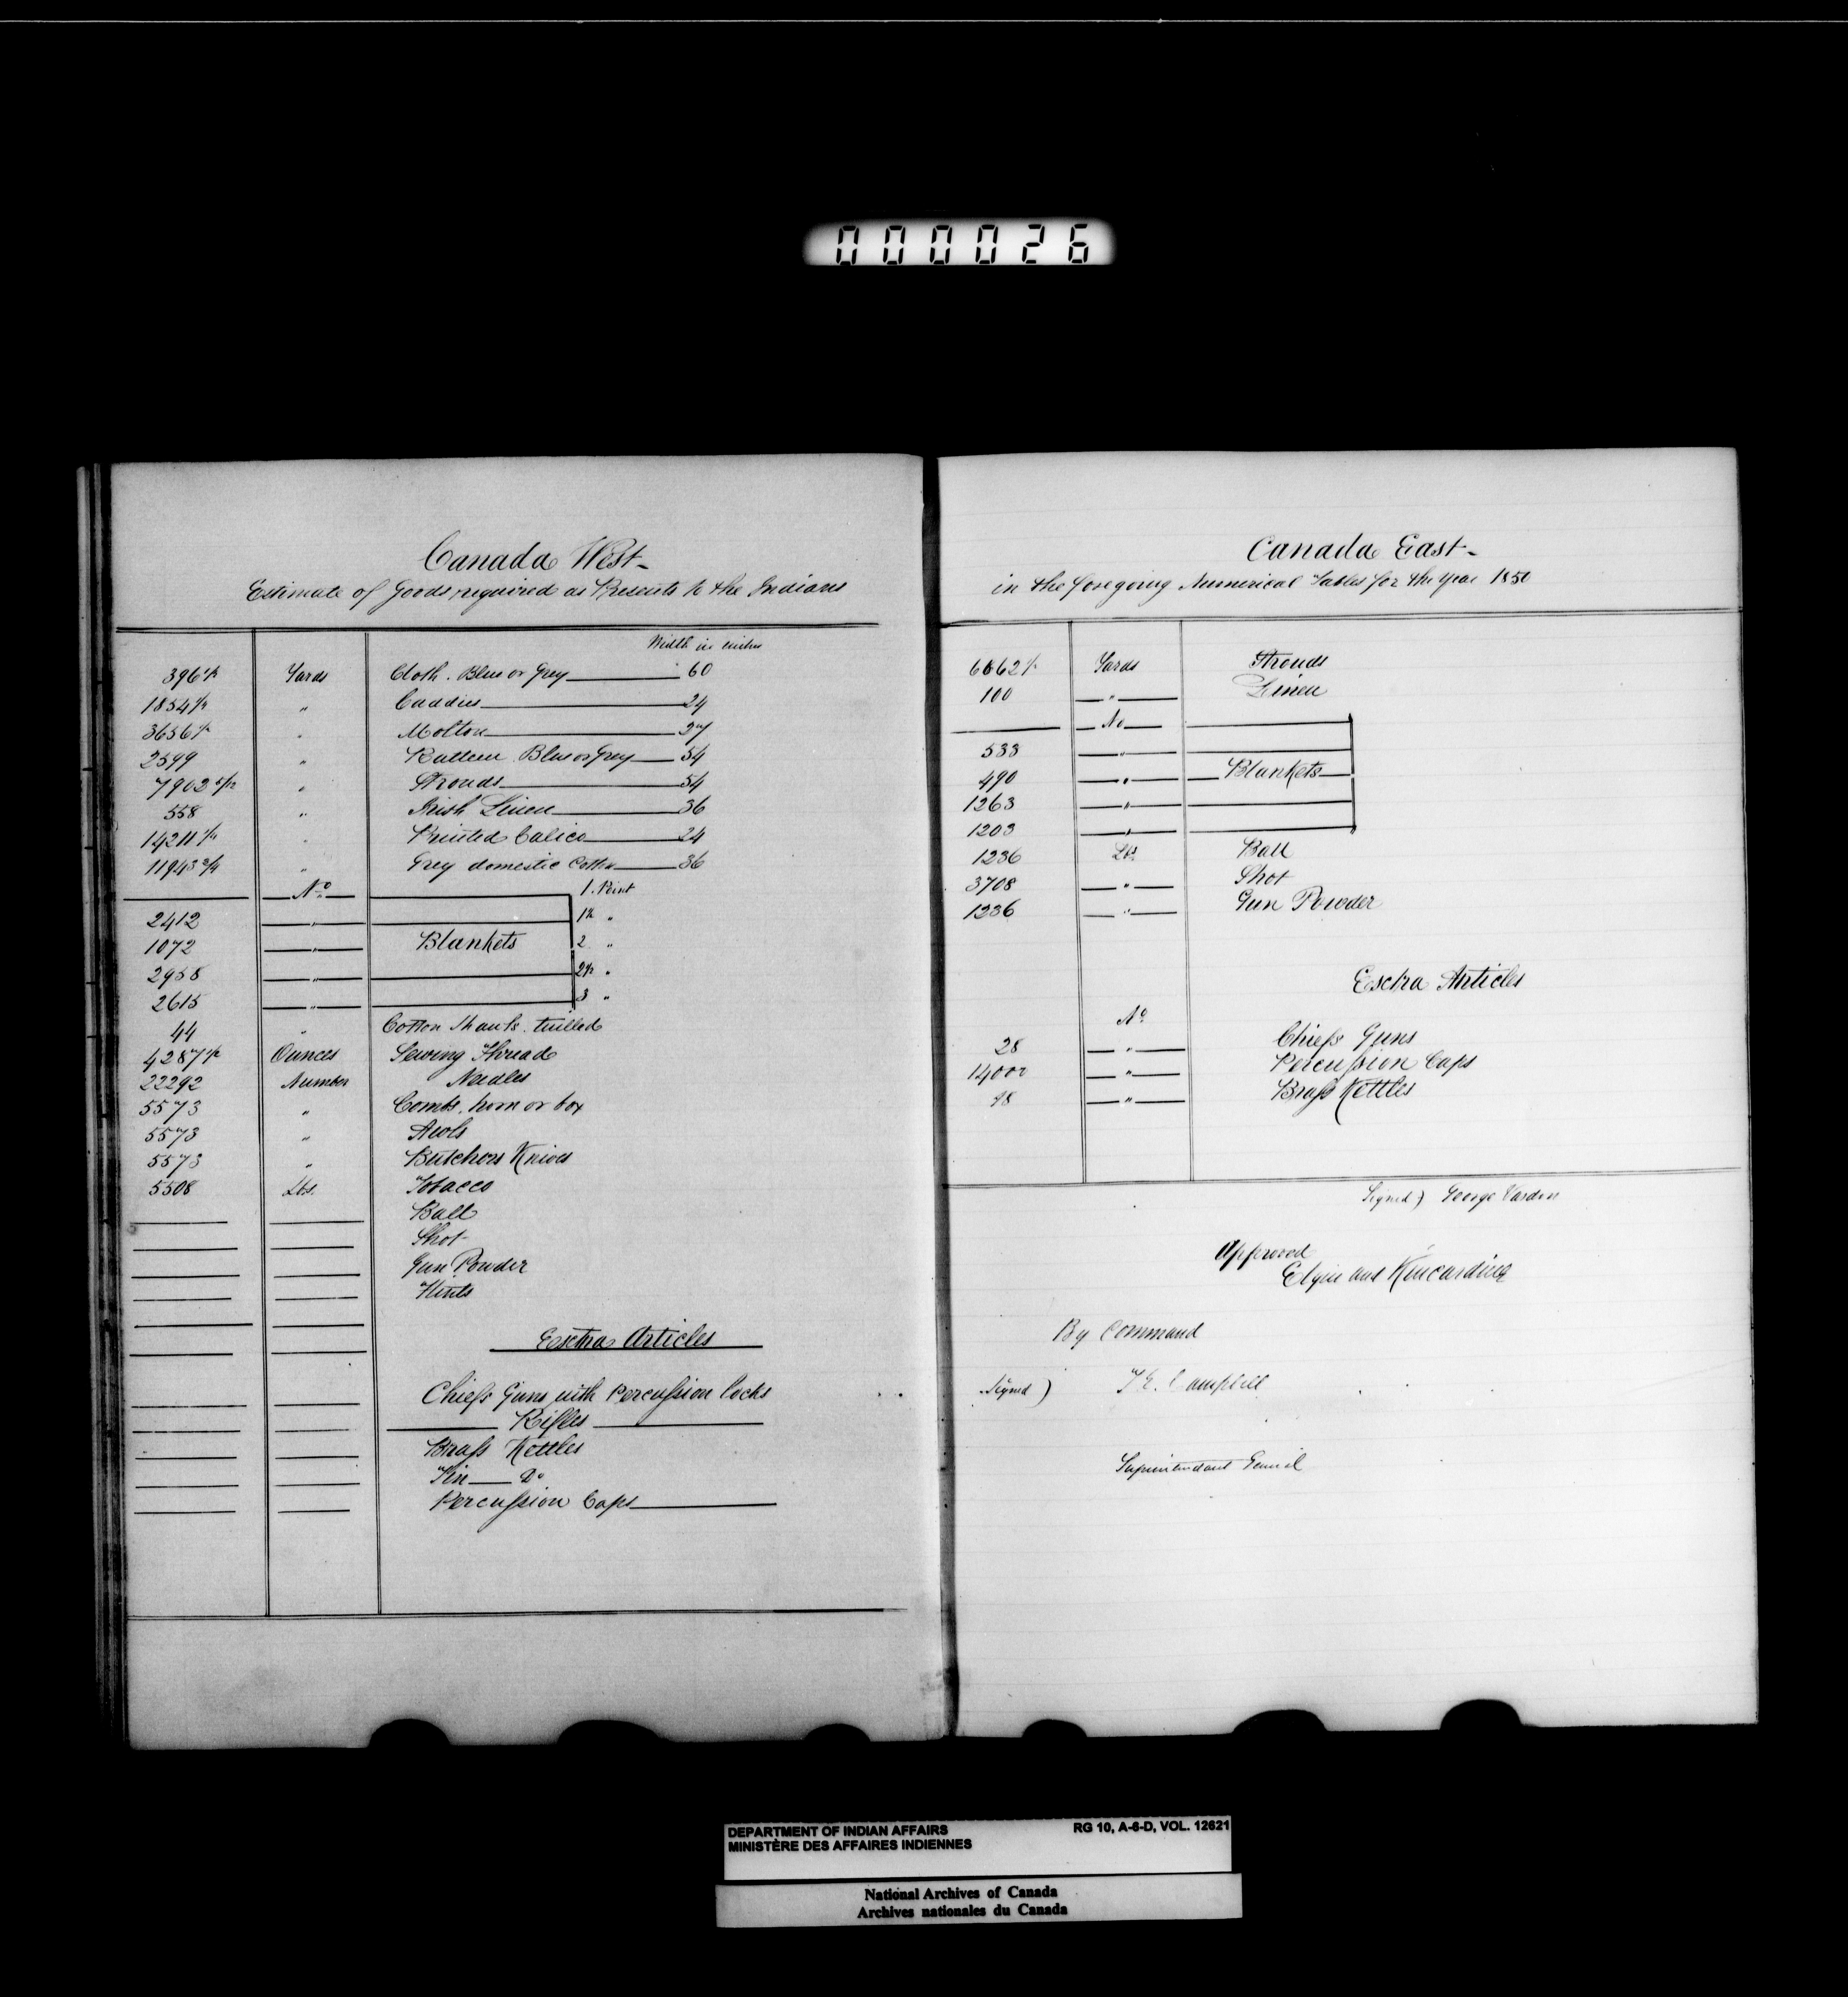 000026
Canada West-
Estimate of Goods required as Presents to the Indians
Width in inches
396 1/2 Yards Cloth. Blue or Grey 60
1854 1/2 " Caddies 24
3656 1/2 " Molton 37
2599 " Ratteen Blue or Grey 54
7902 5/12 " Strouds 54
558 " Irish Linen 36
14211 1/2 " Printed Calico 24
11943 3/4 " Grey domestic Cotton 36
No. 1. Point
2412 " 1½ "
1072 " Blankets 2 "
2958 " 2½ "
2615 " 3 "
44 " Cotton Shawls. twilled
4287 1/2 Ounces Sewing Thread
22292 Number Needles
5573 " Combs. horn or box
5573 " Awls
5573 " Butchers Knives
5508 Lbs. Tobacco
Ball
Shot
Gun Powder
Flints
Extra Articles
Chiefs Guns with Percussion locks
Rifles
Brass Kettles
Tin Do
Percussion Caps
Canada East-
in the foregoing Numerical Tables for the year 1850
Yards Strouds
100 " Linen
No
533 "
490 " Blankets
1263 "
1203 "
1236 Lbs Ball
3708 " Shot
1236 " Gun Powder
Extra Articles
No
28 " Chiefs Guns
14000 " Percussion Caps
" Brass Kettles
Signed) George Vardon
Approved
Elgin and Kincardine
By Command
Signed) T.E. Campbell
Superintendant General
DEPARTMENT OF INDIAN AFFAIRS RG 10, A-6-D, VOL. 12621
MINISTÈRE DES AFFAIRES INDIENNES
National Archives of Canada
Archives nationales du Canada